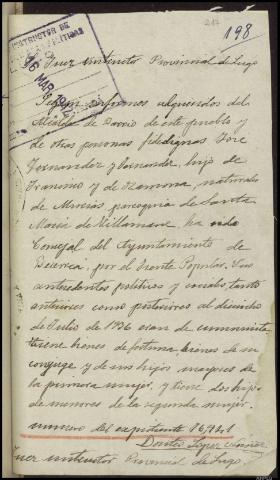 217
198
INSTRUCTOR DE
POLÍTICAS
16 MAR 194
Sr. Juez instructor Provincial de Lugo
Según informes adqueridos del
Alcalde de Barrio de este pueblo y
de otras personas fidedignas José
Fernandez y Fernandez, hijo de
y de Ramona, natural
de parroquia de Santa
Maria de Villamane, ha sido
Concejal del Ayuntamiento de
Becerreá, por el Frente Popular. Sus
antecedentes politicos y sociales, tanto
anteriores como posteriores al dieciocho
de Julio de 1936 eran de comunista
tiene bienes de fortuna, bienes de su
conjuge y de sus hijos mayores de
la primera mujer, y tiene dos hijos
de menores de la segunda mujer.
numero del expediente 16/941
Lopez
Juez instructor Provincial de Lugo.